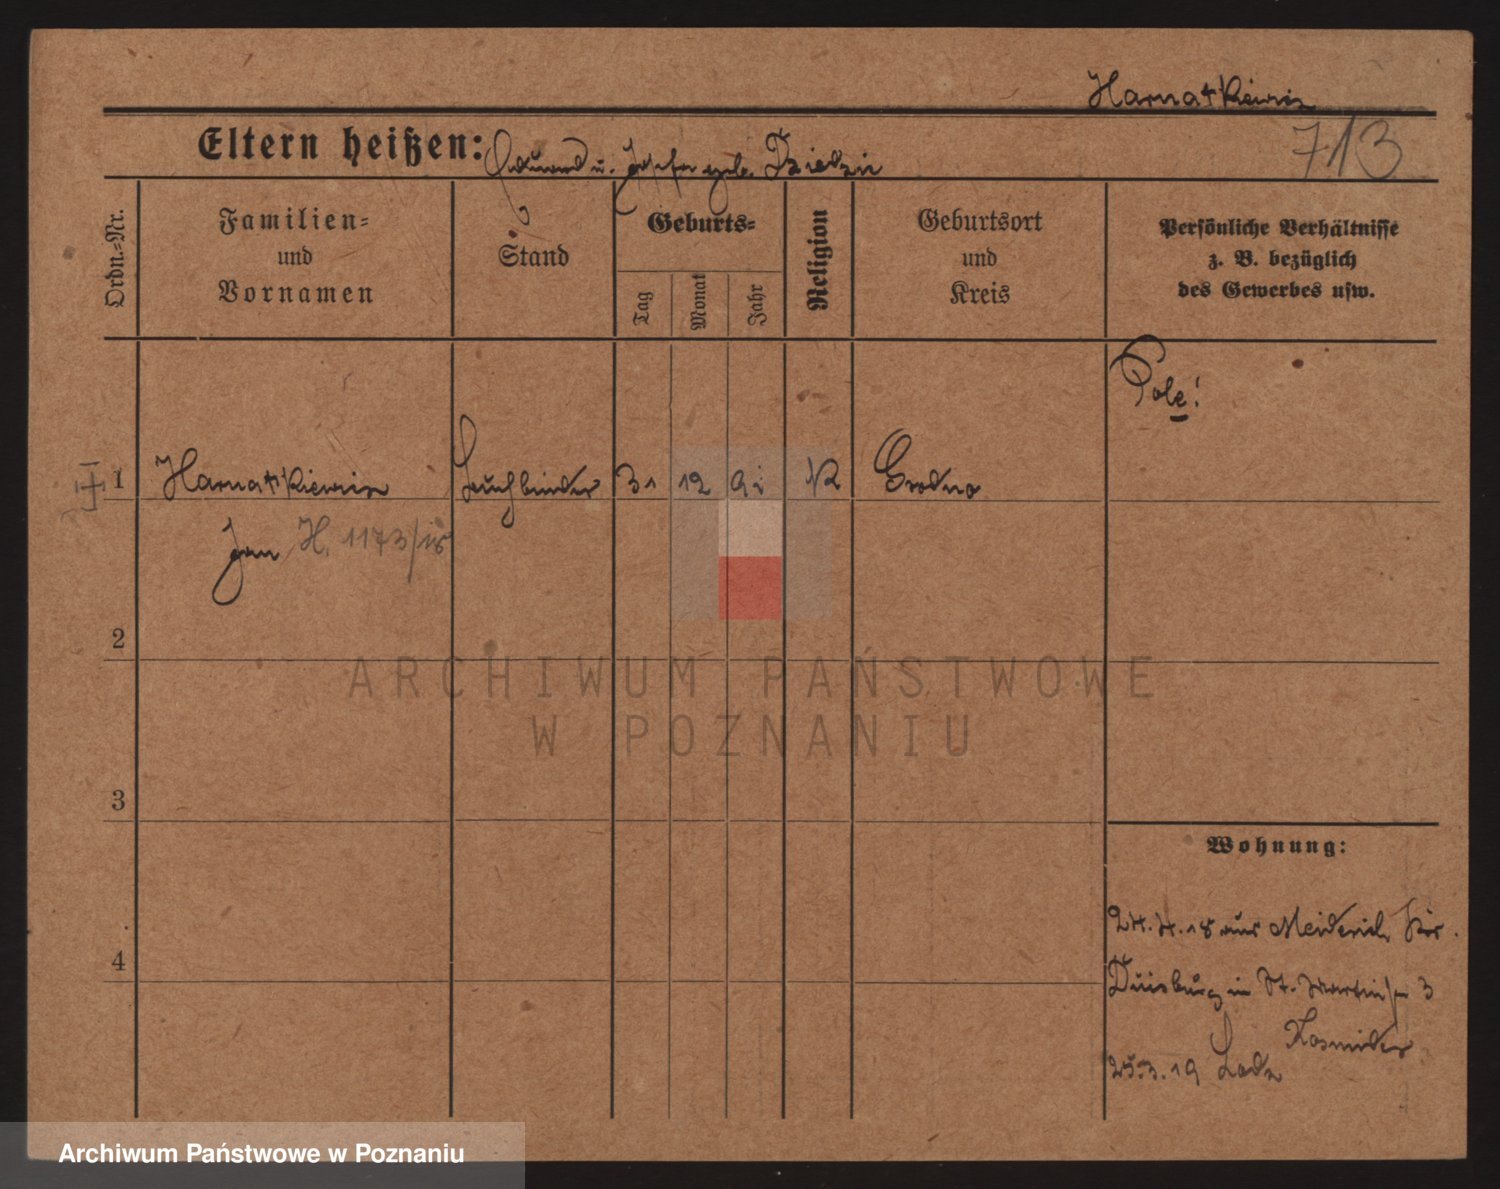 Harnatkiewicz
713
Eltern heißen: Eduard u. Josefa geb.
Ordn.-Nr.
Familien-
und
Vornamen
Stand
Geburts-
Tag
Monat
Jahr
Religion
Geburtsort
und
Kreis
Persönliche Verhältnisse
z. B. bezüglich
des Gewerbes usw.
Pole!
1 Harnatkiewicz Buchbinder 31 12 K Grodno
Jan H. 1173/18
2
ARCHIWUM PAŃSTWOWE
W POZNANIU
3
Wohnung:
24.4.18 aus Meiderich Krs.
4
Duisburg in St. Martinstr 3
Kosmider
25.3.19 Lodz
Archiwum Państwowe w Poznaniu